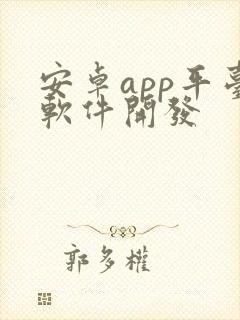 安卓app平臺
軟件開發
郭多權